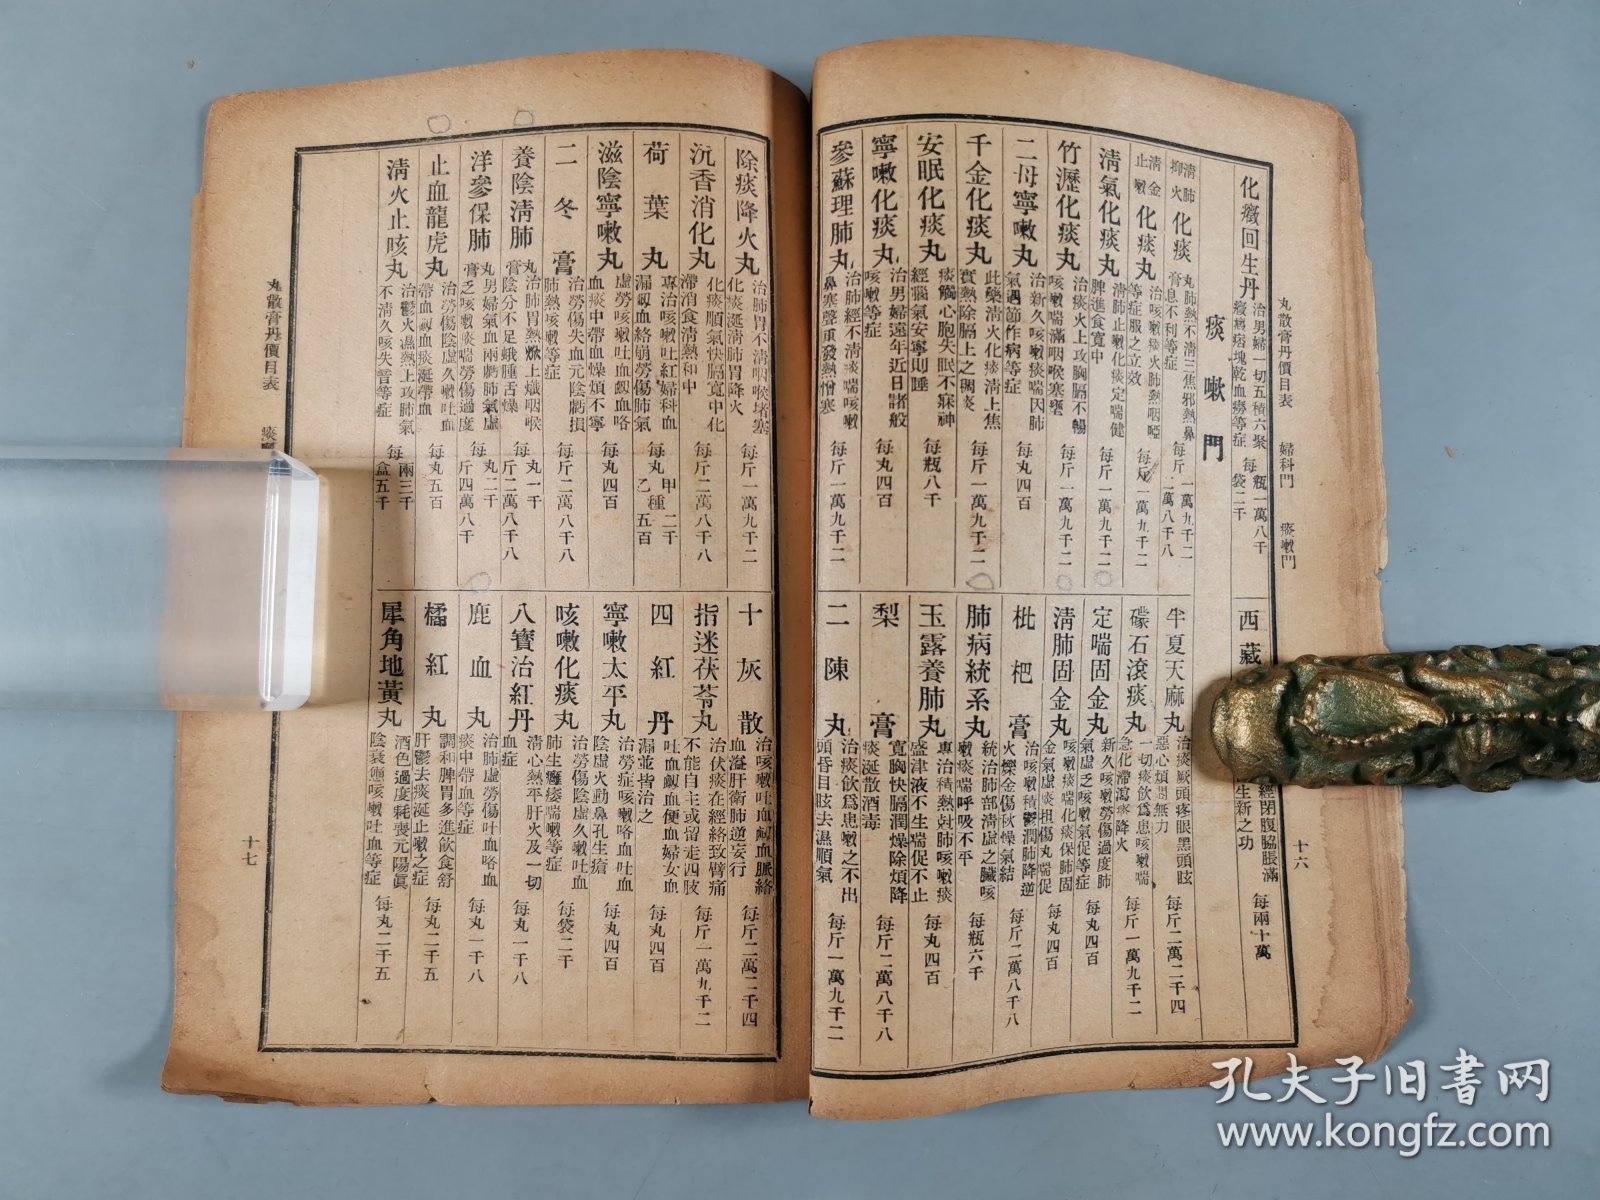 丸散膏丹價目表 婦科門 痰嗽門
十六
化癥回生丹 治男婦一切五積六聚癥瘕痞塊乾血癆等症 每瓶一萬八千袋二千
西藏
經閉腹脇脹滿
生新之功
每兩十萬
痰嗽門
清肺抑火化痰丸膏 肺熱不清三焦邪熱鼻息不利等症 每斤一萬九千二 二萬八千八
清金止嗽化痰丸 治咳嗽痰火肺熱咽啞等症服之立效 每斤一萬九千二
清氣化痰丸 清肺止嗽化痰定喘健脾進食寬中 每斤一萬九千二
竹瀝化痰丸 治痰火上攻胸膈不暢咳嗽喘滿咽喉塞壅 每斤一萬九千二
二母寧嗽丸 治新久咳嗽痰喘因肺氣遇節作病等症 每丸四百
千金化痰丸 此藥清火化痰清上焦實熱除膈上之稠痰 每斤一萬九千二
安眠化痰丸 痰觸心胞失眠不寐神經腦氣安寧則睡 每瓶八千
寧嗽化痰丸 治男婦遠年近日諸般咳嗽等症 每丸四百
參蘇理肺丸 治肺經不清痰喘咳嗽鼻塞聲重發熱憎寒 每斤一萬九千二
半夏天麻丸 治痰厥頭疼眼黑頭眩惡心煩悶無力 每斤二萬二千四
礞石滾痰丸 一切痰飲為患咳嗽喘急化滯瀉痰降火 每斤一萬九千二
定喘固金丸 新久咳嗽勞傷過度肺氣虛乏咳嗽氣促等症 每丸四百
清肺固金丸 咳嗽痰喘化痰保肺固金氣虛痰担傷丸喘促 每丸四百
枇杷膏 治咳嗽積鬱潤肺降逆火爍金傷秋燥氣結 每斤二萬八千八
肺病統系丸 統治肺部清虛之臟咳嗽痰喘呼吸不平 每瓶六千
玉露養肺丸 專治積熱尅肺咳嗽痰盛津液不生喘促不止 每丸四百
梨膏 寬胸快膈潤燥除煩降痰涎散酒毒 每斤二萬八千八
二陳丸 治痰飲為患嗽之不出頭昏目眩去濕順氣 每斤一萬九千二
除痰降火丸 治肺胃不清咽喉堵塞化痰涎清肺胃降火 每斤一萬九千二
沉香消化丸 化痰順氣快膈寬中化滯消食清熱和中 每斤二萬八千八
荷葉丸 專治咳嗽吐紅婦科血漏衂血絡崩勞傷肺氣 每丸甲種二千乙五百
滋陰寧嗽丸 虛勞咳嗽吐血衂血咯血痰中帶血燥煩不寧 每丸四百
二冬膏 治勞傷失血元陰虧損肺熱咳嗽等症 每斤二萬八千八
養陰清肺丸膏 治肺胃熱燉上熾咽喉陰分不足蛾腫舌燥 每丸一千斤二萬八千八
洋參保肺丸膏 男婦氣血兩虧肺氣虛乏咳嗽痰喘勞傷過度 每丸二千斤四萬八千
止血龍虎丸 治勞傷陰虛久嗽吐血帶血衂血痰涎帶血 每丸五百
清火止咳丸 治鬱火濕熱上攻肺氣不清久咳失音等症 每兩三千盒五千
十灰散 治咳嗽吐血衂血脈絡血溢肝衛肺逆妄行 每斤二萬二千四
指迷茯苓丸 治伏痰在經絡致臂痛不能自主或留走四肢 每斤一萬九千二
四紅丹 吐血衂血便血婦女血漏並皆治之 每丸四百
寧嗽太平丸 治勞症咳嗽咯血吐血陰虛火動鼻孔生瘡 每丸四百
咳嗽化痰丸 治勞傷陰虛久嗽吐血肺生癰痿喘嗽等症 每袋二千
八寶治紅丹 清心熱平肝火及一切血症 每丸一千八
鹿血丸 治肺虛勞傷吐血咯血痰中帶血等症 每丸一千八
橘紅丸 調和脾胃多進飲食舒肝鬱去痰涎止嗽之症 每丸二千五
犀角地黃丸 酒色過度耗喪元陽眞陰衰憊咳嗽吐血等症 每丸二千五
丸散膏丹價目表 痰
十七
孔夫子旧书网
www.kongfz.com